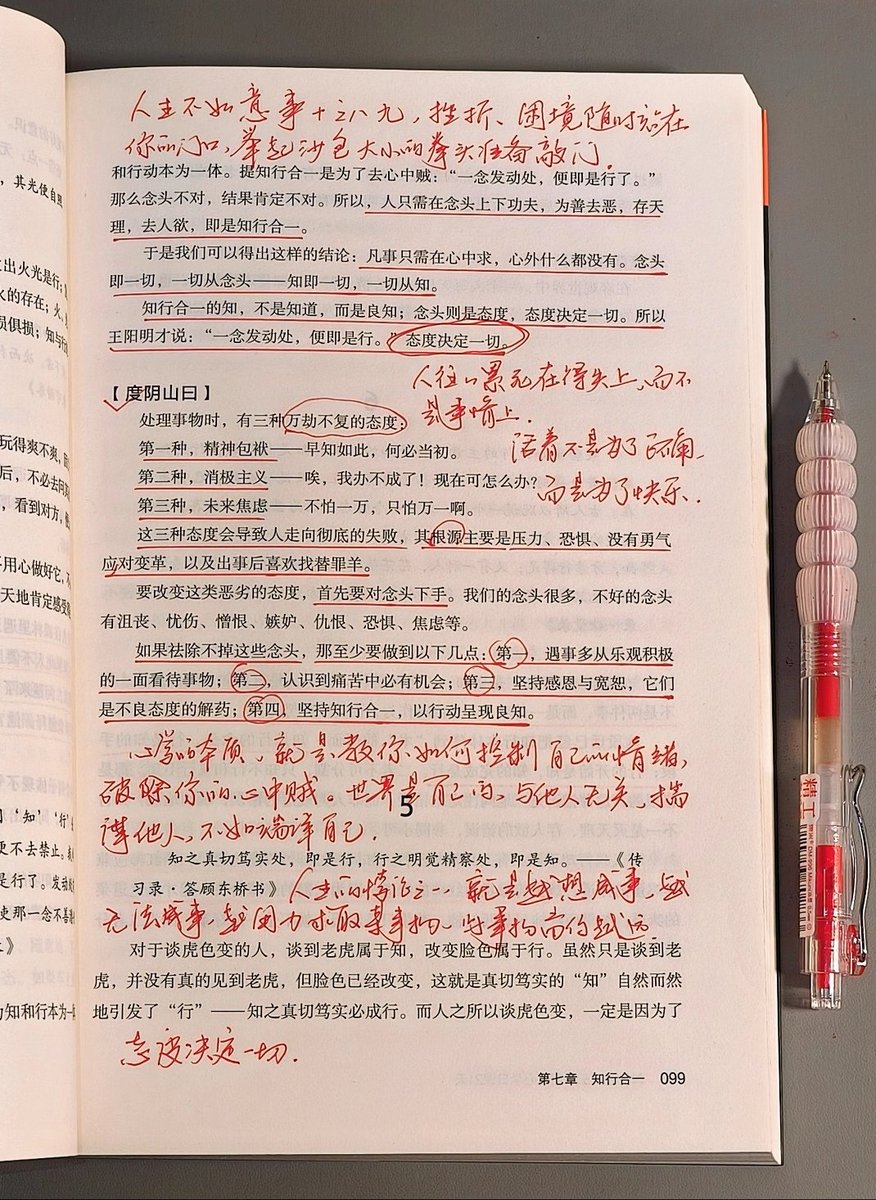 人生不如意事十之八九，挫折、困境随时站在
你的门口，举起沙包大小的拳头准备敲门．
和行动本为一体。提知行合一是为了去心中贼：“一念发动处，便即是行了。”
那么念头不对，结果肯定不对。所以，人只需在念头上下功夫，为善去恶，存天
理，去人欲，即是知行合一。
于是我们可以得出这样的结论：凡事只需在心中求，心外什么都没有。念头
即一切，一切从念头——知即一切，一切从知。
知行合一的知，不是知道，而是良知；念头则是态度，态度决定一切。所以
王阳明才说：“一念发动处，便即是行。”态度决定一切。
人往往累死在得失上，而不
是事情上．
【度阴山曰】
处理事物时，有三种万劫不复的态度：
活着不是为了
而是为了快乐．
第一种，精神包袱——早知如此，何必当初。
第二种，消极主义——唉，我办不成了！现在可怎么办？
第三种，未来焦虑——不怕一万，只怕万一啊。
这三种态度会导致人走向彻底的失败，其根源主要是压力、恐惧、没有勇气
应对变革，以及出事后喜欢找替罪羊。
要改变这类恶劣的态度，首先要对念头下手。我们的念头很多，不好的念头
有沮丧、忧伤、憎恨、嫉妒、仇恨、恐惧、焦虑等。
如果祛除不掉这些念头，那至少要做到以下几点：第一，遇事多从乐观积极
的一面看待事物；第二，认识到痛苦中必有机会；第三，坚持感恩与宽恕，它们
是不良态度的解药；第四，坚持知行合一，以行动呈现良知。
心学的本质，就是教你如何控制自己的情绪，
破除你的心中贼。世界是自己的，与他人无关，揣
谍他人，不如端详自己．
5
知之真切笃实处，即是行，行之明觉精察处，即是知。——《传
习录·答顾东桥书》
人生的悖论之一，就是越想成事，越
无法成事，越用力求取某事物，与事物离的越远
对于谈虎色变的人，谈到老虎属于知，改变脸色属于行。虽然只是谈到老
虎，并没有真的见到老虎，但脸色已经改变，这就是真切笃实的“知”自然而然
地引发了“行”——知之真切笃实必成行。而人之所以谈虎色变，一定是因为了
态度决定一切．
第七章 知行合一 099
精工